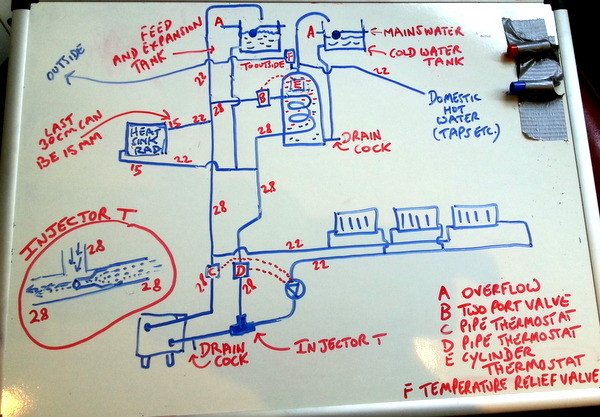 A
FEED
AND EXPANSION
TANK
A
MAINS WATER
COLD WATER
TANK
OUTSIDE
TO OUTSIDE
F
22
22
E
B
28
28
DOMESTIC
HOT
WATER
(TAPS ETC.)
LAST
30CM CAN
BE 15MM
15
22
HEAT
SINK
RAD
22
15
DRAIN
COCK
28
28
INJECTOR T
28
28
28
22
22
C
D
28
28
DRAIN
COCK
INJECTOR T
A OVERFLOW
B TWO PORT VALVE
C PIPE THERMOSTAT
D PIPE THERMOSTAT
E CYLINDER
THERMOSTAT
F TEMPERATURE RELIEF VALVE